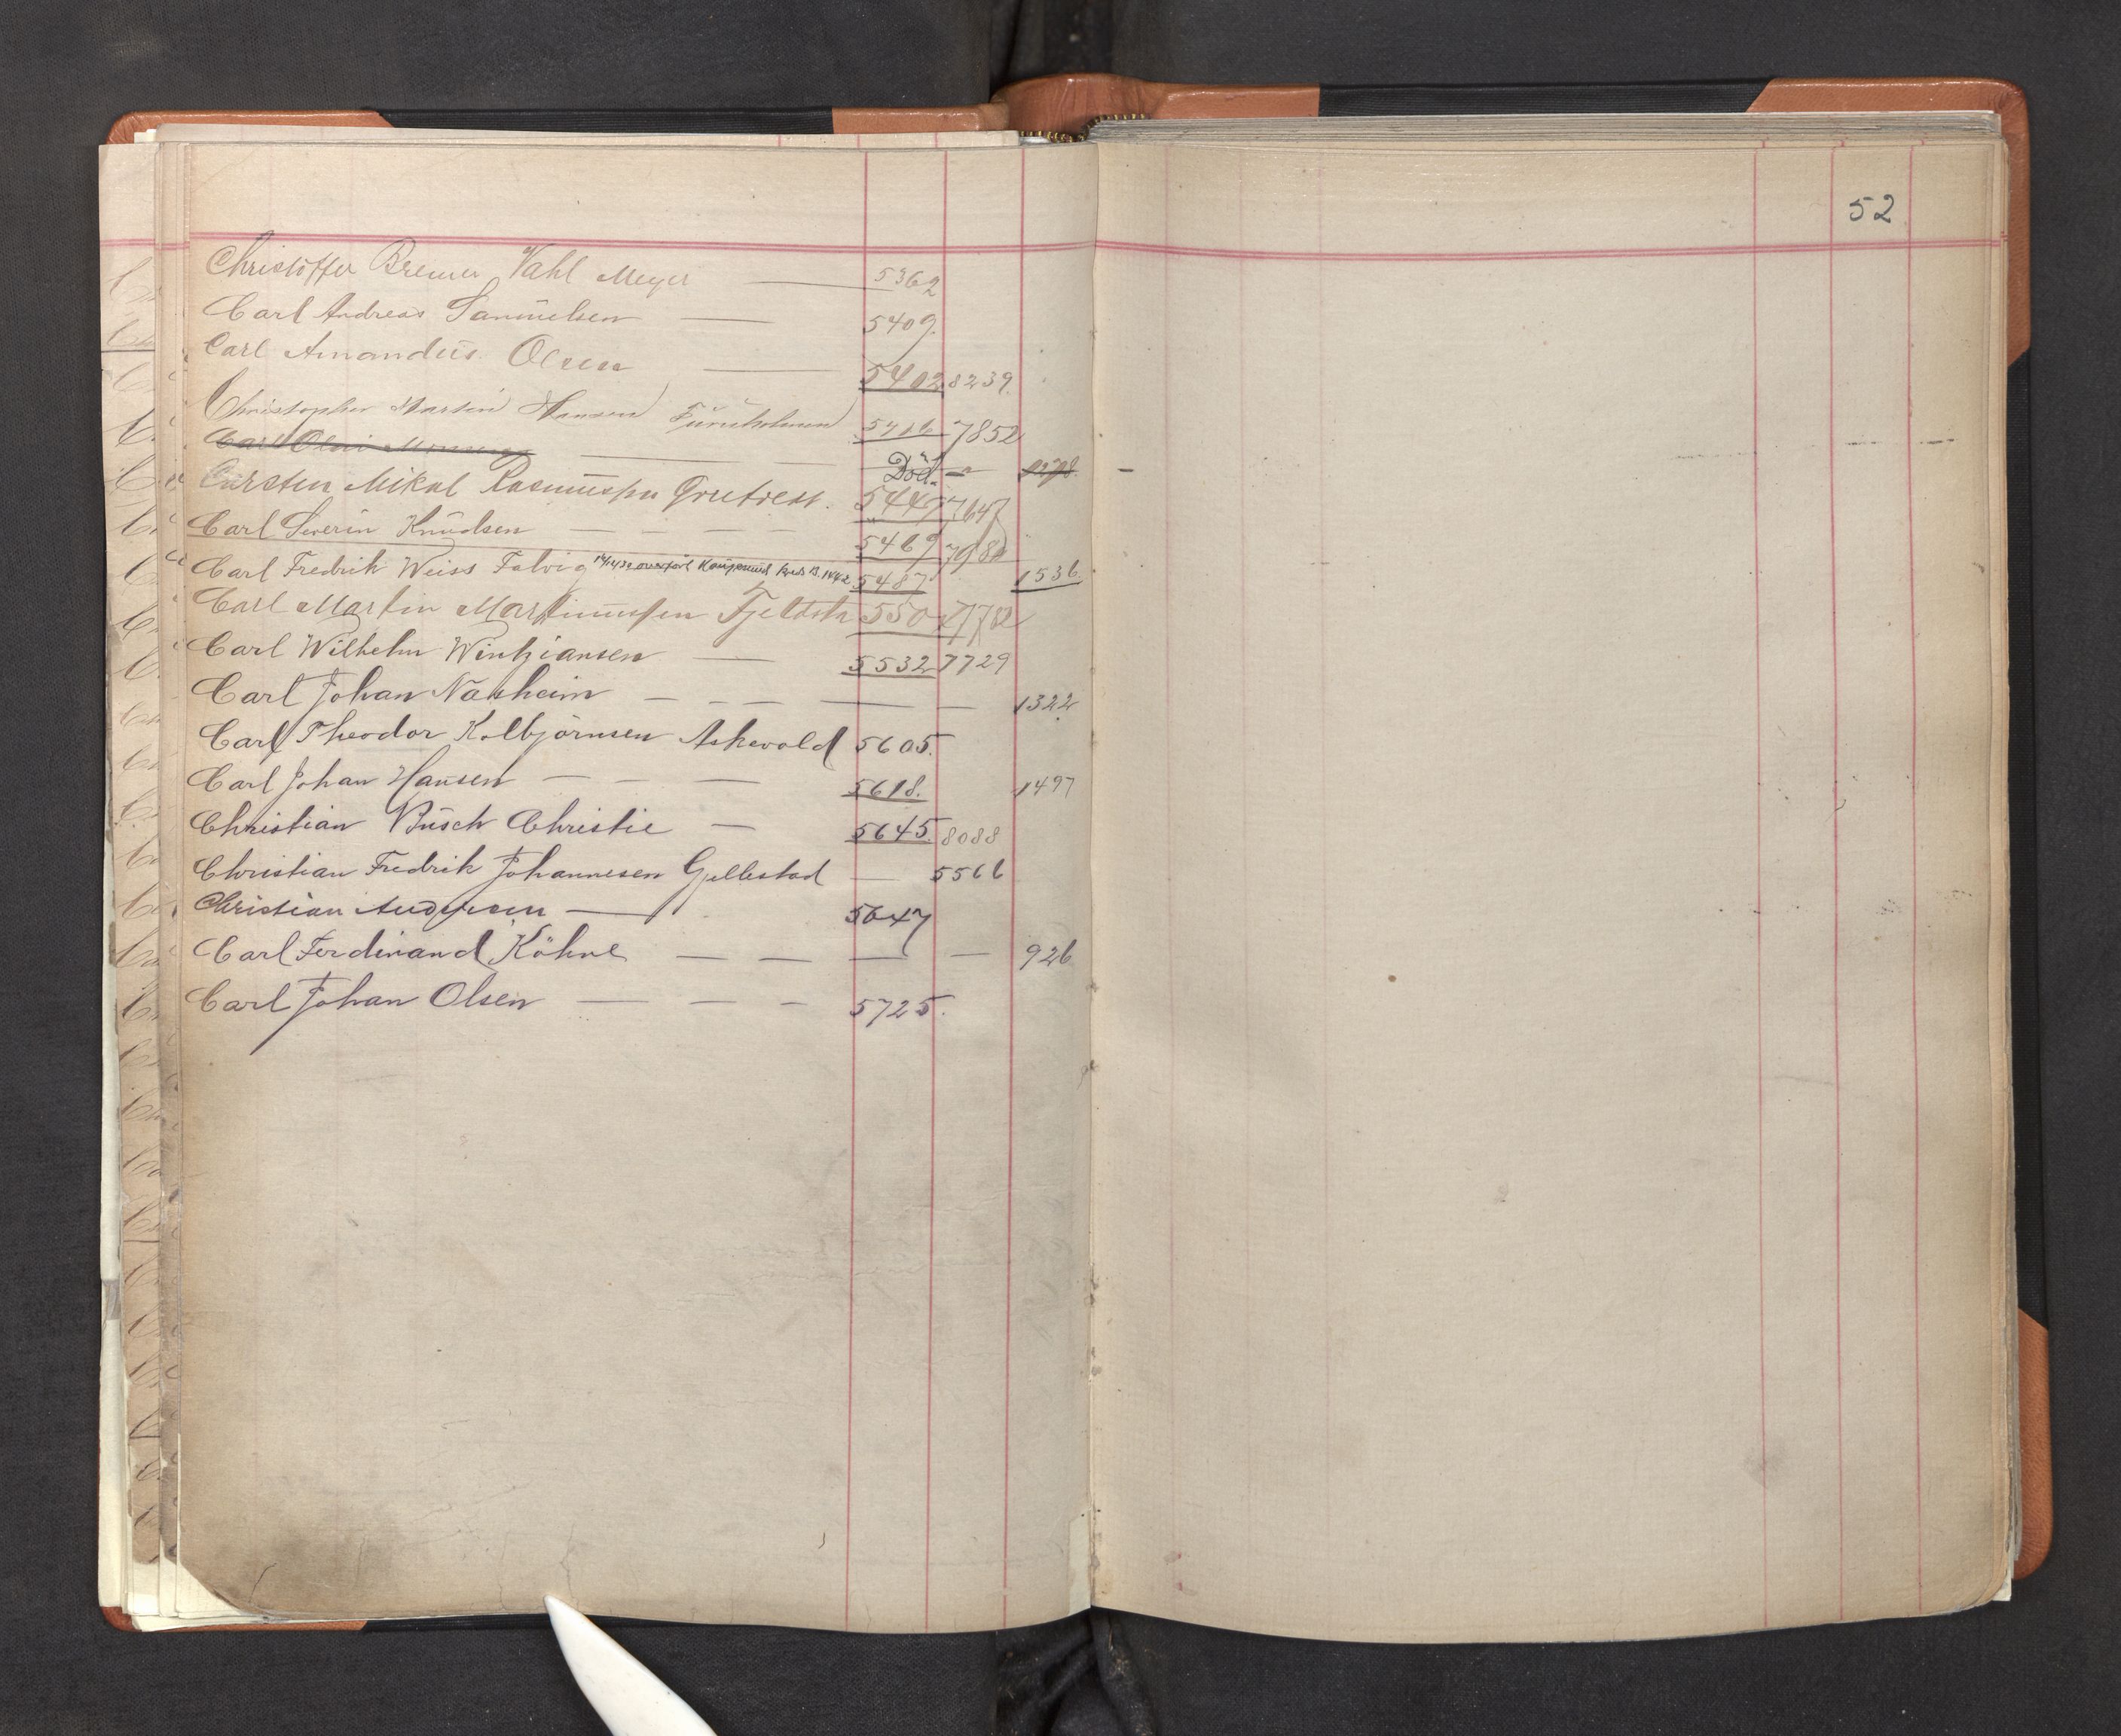 52
Christoffer Bremer Vahl Meyer — 5362
Carl Andreas Samuelsen — 5409.
Carl Amandus Olsen — 5402 8239.
Christopher Martin Hansen Furuholmen 7852
Carl Olai — Död. —
Carsten Mikal Rasmussen 5447 7647
Carl Severin Knudsen — — — 5469
Carl Fredrik Weiss Falvig 5487 1536
Carl Martin Martinussen
Carl Wilhelm — 5532 7729
Carl Johan — — — — — 1322
Carl Theodor Kolbjörnsen Askevold 5605.
Carl Johan Hansen — — — 5618. 1497
Christian Busch Christie — 5645. 8088
Christian Fredrik Johannesen Gjellestad — 5566
Christian Andersen — 5647
Carl Ferdinand Köhne — — — — 926
Carl Johan Olsen — — — 5725.